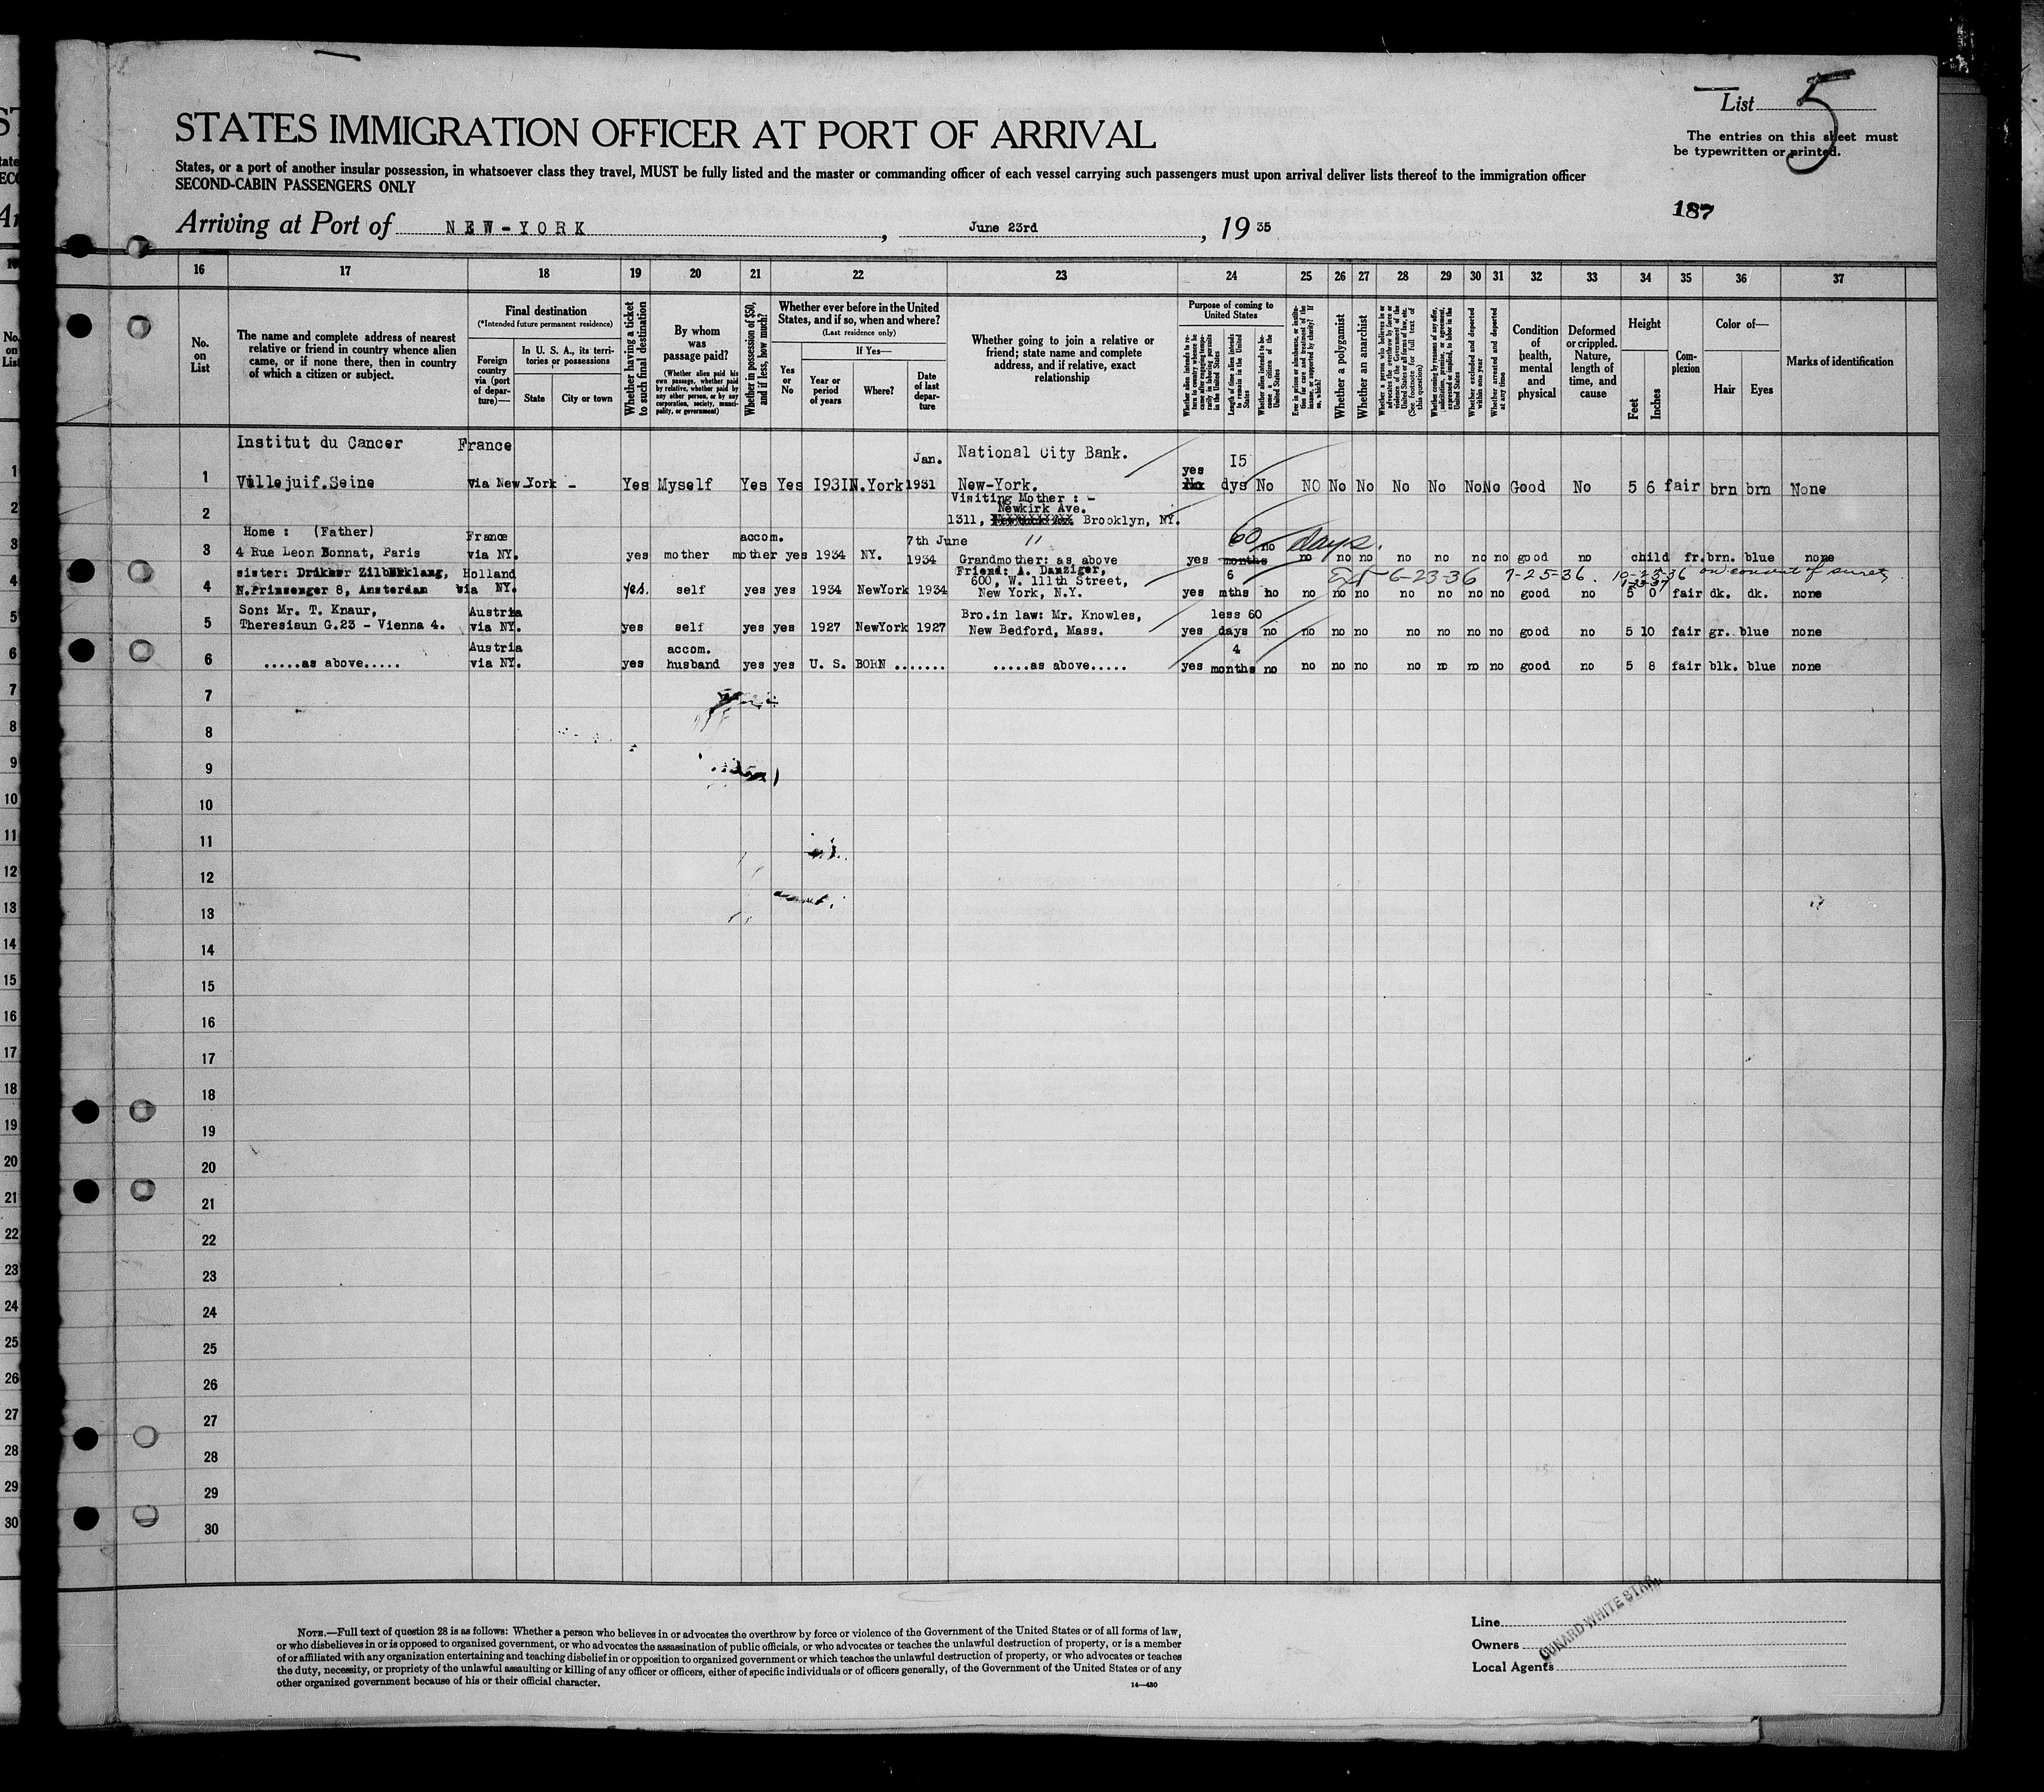 List 5
STATES IMMIGRATION OFFICER AT PORT OF ARRIVAL
The entries on this sheet must
be typewritten or printed.
States, or a port of another insular possession, in whatsoever class they travel, MUST be fully listed and the master or commanding officer of each vessel carrying such passengers must upon arrival deliver lists thereof to the immigration officer
SECOND-CABIN PASSENGERS ONLY
187
Arriving at Port of NEW-YORK, June 23rd, 1935
16 17 18 19 20 21 22 23 24 25 26 27 28 29 30 31 32 33 34 35 36 37
No.
on
List
The name and complete address of nearest
relative or friend in country whence alien
came, or if none there, then in country
of which a citizen or subject.
Final destination
(*Intended future permanent residence)
Foreign
country
via (port
of depar-
ture)—
In U. S. A., its terri-
tories or possessions
State
City or town
Whether having a ticket
to such final destination
By whom
was
passage paid?
(Whether alien paid his
own passage, whether paid
by relative, whether paid by
any other person, or by any
corporation, society, munici-
pality, or government)
Whether in possession of $50,
and if less, how much?
Whether ever before in the United
States, and if so, when and where?
(Last residence only)
Yes
or
No
If Yes—
Year or
period
of years
Where?
Date
of last
depar-
ture
Whether going to join a relative or
friend; state name and complete
address, and if relative, exact
relationship
Purpose of coming to
United States
Whether alien intends to re-
turn to country whence he
came after engaging tempo-
rarily in laboring pursuits
in the United States
Length of time alien intends
to remain in the United
States
Whether alien intends to be-
come a citizen of the
United States
Ever in prison or almshouse, or institu-
tion for care and treatment of the
insane, or supported by charity? If
so, which?
Whether a polygamist
Whether an anarchist
Whether a person who believes in or
advocates the overthrow by force or
violence of the Government of the
United States or all forms of law, etc.
(See footnote for full text of
this question)
Whether coming by reasons of any offer,
solicitation, promise, or agreement,
expressed or implied, to labor in the
United States
Whether excluded and deported
within one year
Whether arrested and deported
at any time
Condition
of
health,
mental
and
physical
Deformed
or crippled.
Nature,
length of
time, and
cause
Height
Feet
Inches
Com-
plexion
Color of—
Hair
Eyes
Marks of identification
Institut du Cancer France Jan. National City Bank. 15
1 Villejuif.Seine via New York - Yes Myself Yes Yes 1931 N.York 1931 New-York. yes dys No NO No No No No No No Good No 5 6 fair brn brn None
Visiting Mother : -
Newkirk Ave.
2 1311, Brooklyn, NY.
Home : (Father) France accom. 7th June " 60 days.
3 4 Rue Leon Bonnat, Paris via NY. yes mother mother yes 1934 NY. 1934 Grandmother: as above yes months no no no no no no no no good no child fr. brn. blue none
sister: Drikker Zilberklang, Holland Friend: A. Danziger, 6 6-23-36 7-25-36. 10-23-36 on consent of surety
600, W. 111th Street,
4 N.Prinsenger 8, Amsterdam via NY. yes. self yes yes 1934 NewYork 1934 New York, N.Y. yes mths no no no no no no no no good no 5 0 fair dk. dk. none
Son: Mr. T. Knaur, Austria Bro.in law: Mr. Knowles, less 60
5 Theresiaun G.23 - Vienna 4. via NY. yes self yes yes 1927 NewYork 1927 New Bedford, Mass. yes days no no no no no no no no good no 5 10 fair gr. blue none
Austria accom. 4
6 .....as above..... via NY. yes husband yes yes U. S. BORN ....... .....as above..... yes months no no no no no no no no good no 5 8 fair blk. blue none
7
8
9
10
11
12
13
14
15
16
17
18
19
20
21
22
23
24
25
26
27
28
29
30
NOTE.—Full text of question 28 is as follows: Whether a person who believes in or advocates the overthrow by force or violence of the Government of the United States or of all forms of law,
or who disbelieves in or is opposed to organized government, or who advocates the assassination of public officials, or who advocates or teaches the unlawful destruction of property, or is a member
of or affiliated with any organization entertaining and teaching disbelief in or opposition to organized government or which teaches the unlawful destruction of property, or who advocates or teaches
the duty, necessity, or propriety of the unlawful assaulting or killing of any officer or officers, either of specific individuals or of officers generally, of the Government of the United States or of any
other organized government because of his or their official character.
14—430
Line
Owners
Local Agents
CUNARD-WHITE STAR